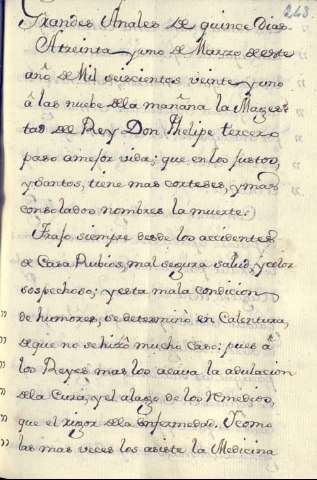 243.
Grandes Anales de quince Dias.
A treinta y uno de Marzo de este
año de Mil seiscientos veinte y uno
â las nuebe de la mañana la Mages-
tad del Rey Don Phelipe tercero
paso a mejor vida; que en los justos,
y Santos, tiene mas corteses, y mas
consolados nombres la muerte.
Trajo siempre desde los accidentes
de Casa Rubios, mal segura salud, y color
sospechoso; y esta mala condicion
de humores, se determinò en Calentura,
de que no se hizo mucho caso: pues â
los Reyes mas los acava la adulacion
de la Cura, y el alago de los Remedios,
que el rigor de la enfermedad. Y como
las mas veces los asiste la Medicina